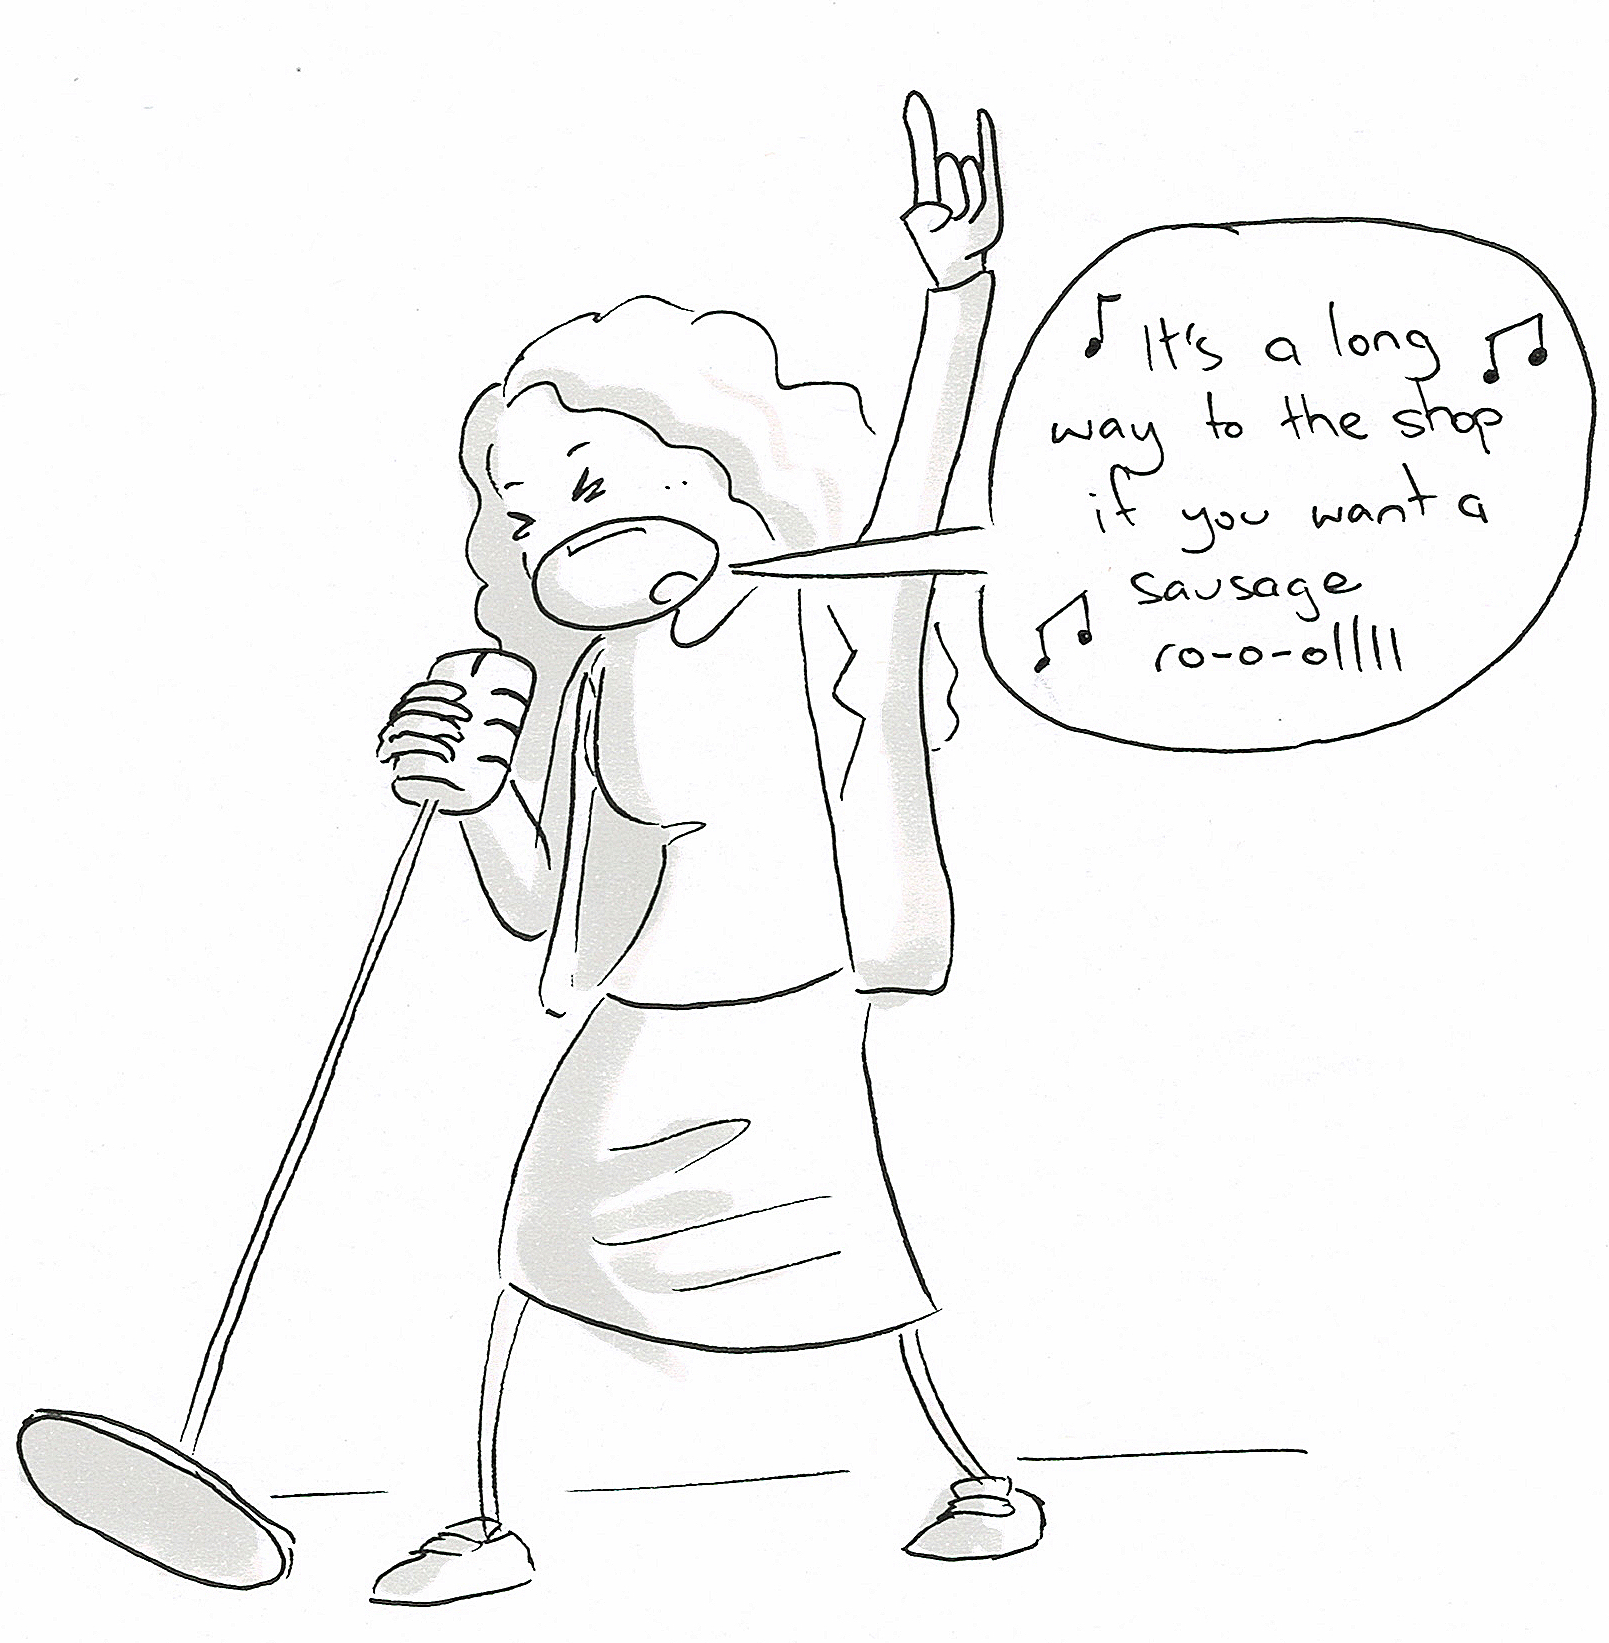 It's a long
way to the shop
if you want a
sausage
ro-o-ollll